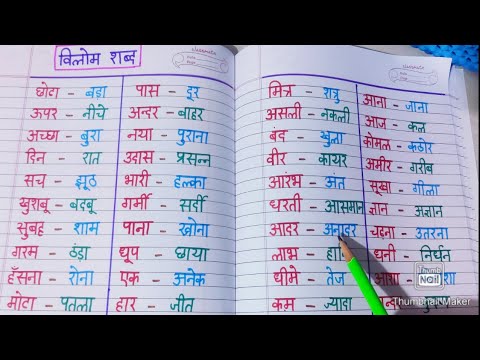 विलोम शब्द
classmate
छोटा - बड़ा
ऊपर - नीचे
अच्छा - बुरा
दिन - रात
सच - झूठ
खुशबू - बदबू
सुबह - शाम
गरम - ठंडा
हँसना - रोना
मोटा - पतला
पास - दूर
अन्दर - बाहर
नया - पुराना
उदास - प्रसन्न
भारी - हल्का
गर्मी - सर्दी
पाना - खोना
धूप - छाया
एक - अनेक
हार - जीत
classmate
मित्र - शत्रु
असली - नकली
बंद - खुला
वीर - कायर
आरंभ - अंत
धरती - आसमान
आदर - अनादर
लाभ -
धीमे - तेज
कम - ज्यादा
आना - जाना
आज - कल
कोमल - कठोर
अमीर - गरीब
सूखा - गीला
ज्ञान - अज्ञान
चढ़ना - उतरना
धनी - निर्धन
Thumb
Nail
Thumbnail Maker